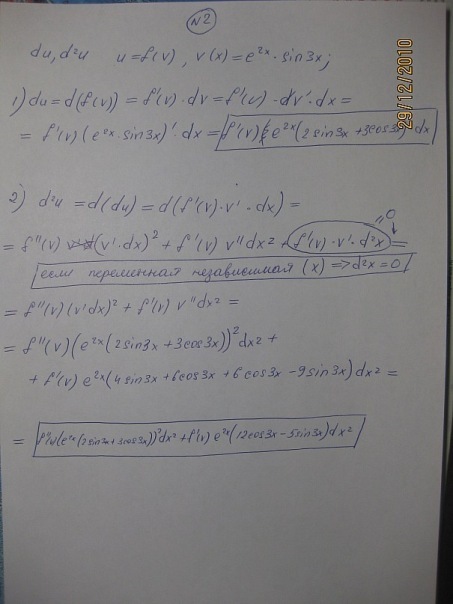 №2
du, d²u   u = f(v), v(x) = e²ˣ · sin3x;
1) du = d(f(v)) = f'(v) · dv = f'(v) · dv' · dx =
= f'(v) (e²ˣ · sin3x)' · dx = f'(v) e²ˣ (2 sin3x + 3cos3x) dx
2) d²u = d(du) = d(f'(v) · v' · dx) =
= f''(v) (v' · dx)² + f'(v) v'' dx² + f'(v) · v' · d²x =
"0
если переменная независимая (x) => d²x = 0
= f''(v) (v'dx)² + f'(v) v'' dx² =
= f''(v) (e²ˣ (2sin3x + 3cos3x))² dx² +
+ f'(v) e²ˣ (4sin3x + 6cos3x + 6cos3x - 9sin3x) dx² =
= f''(v) (e²ˣ (2sin3x + 3cos3x))² dx² + f'(v) e²ˣ (12cos3x - 5sin3x) dx²
29/12/2010